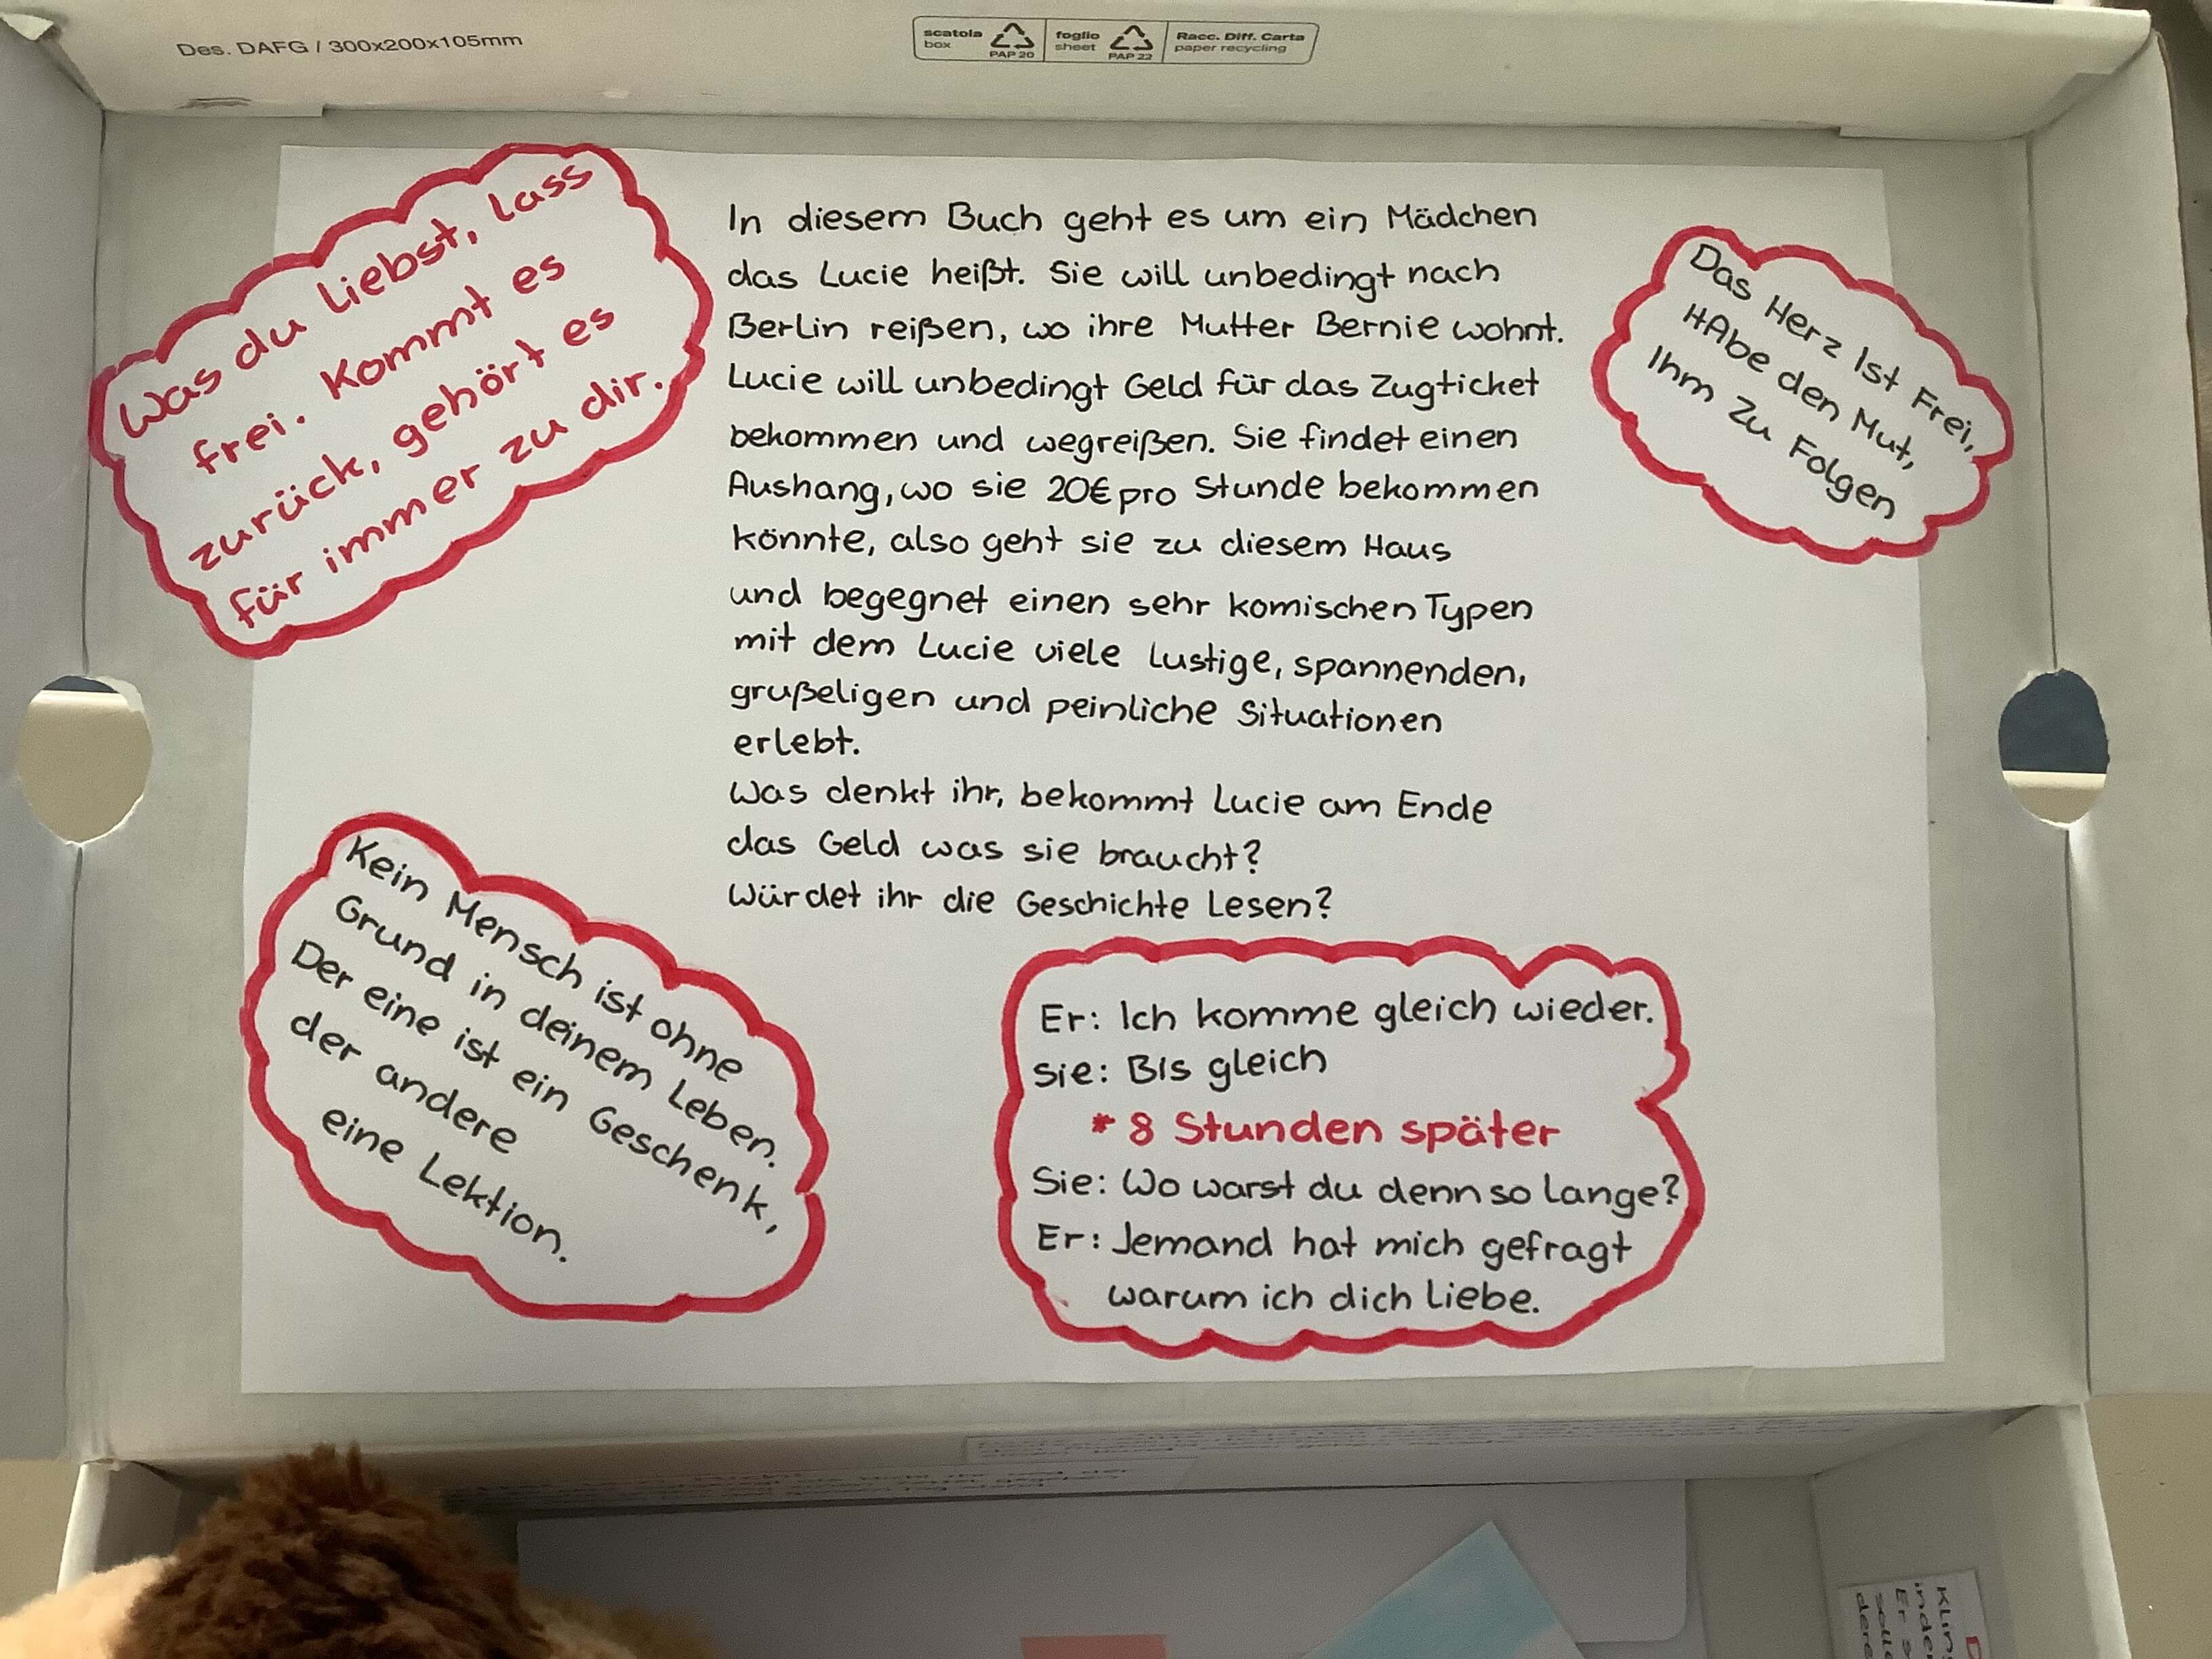 Des. DAFG / 300x200x105mm
scatola
box
PAP 20
foglio
sheet
PAP 22
Racc. Diff. Carta
paper recycling
Was du liebst, lass
frei. Kommt es
zurück, gehört es
für immer zu dir.
In diesem Buch geht es um ein Mädchen
das Lucie heißt. Sie will unbedingt nach
Berlin reißen, wo ihre Mutter Bernie wohnt.
Lucie will unbedingt Geld für das Zugticket
bekommen und wegreißen. Sie findet einen
Aushang, wo sie 20€ pro Stunde bekommen
könnte, also geht sie zu diesem Haus
und begegnet einen sehr komischen Typen
mit dem Lucie viele lustige, spannenden,
grußeligen und peinliche Situationen
erlebt.
Was denkt ihr, bekommt Lucie am Ende
das Geld was sie braucht?
Würdet ihr die Geschichte Lesen?
Das Herz Ist Frei,
HAbe den Mut,
Ihm Zu Folgen
Kein Mensch ist ohne
Grund in deinem Leben.
Der eine ist ein Geschenk,
der andere
eine Lektion.
Er: Ich komme gleich wieder.
Sie: BIs gleich
* 8 Stunden später
Sie: Wo warst du denn so lange?
Er: Jemand hat mich gefragt
warum ich dich Liebe.